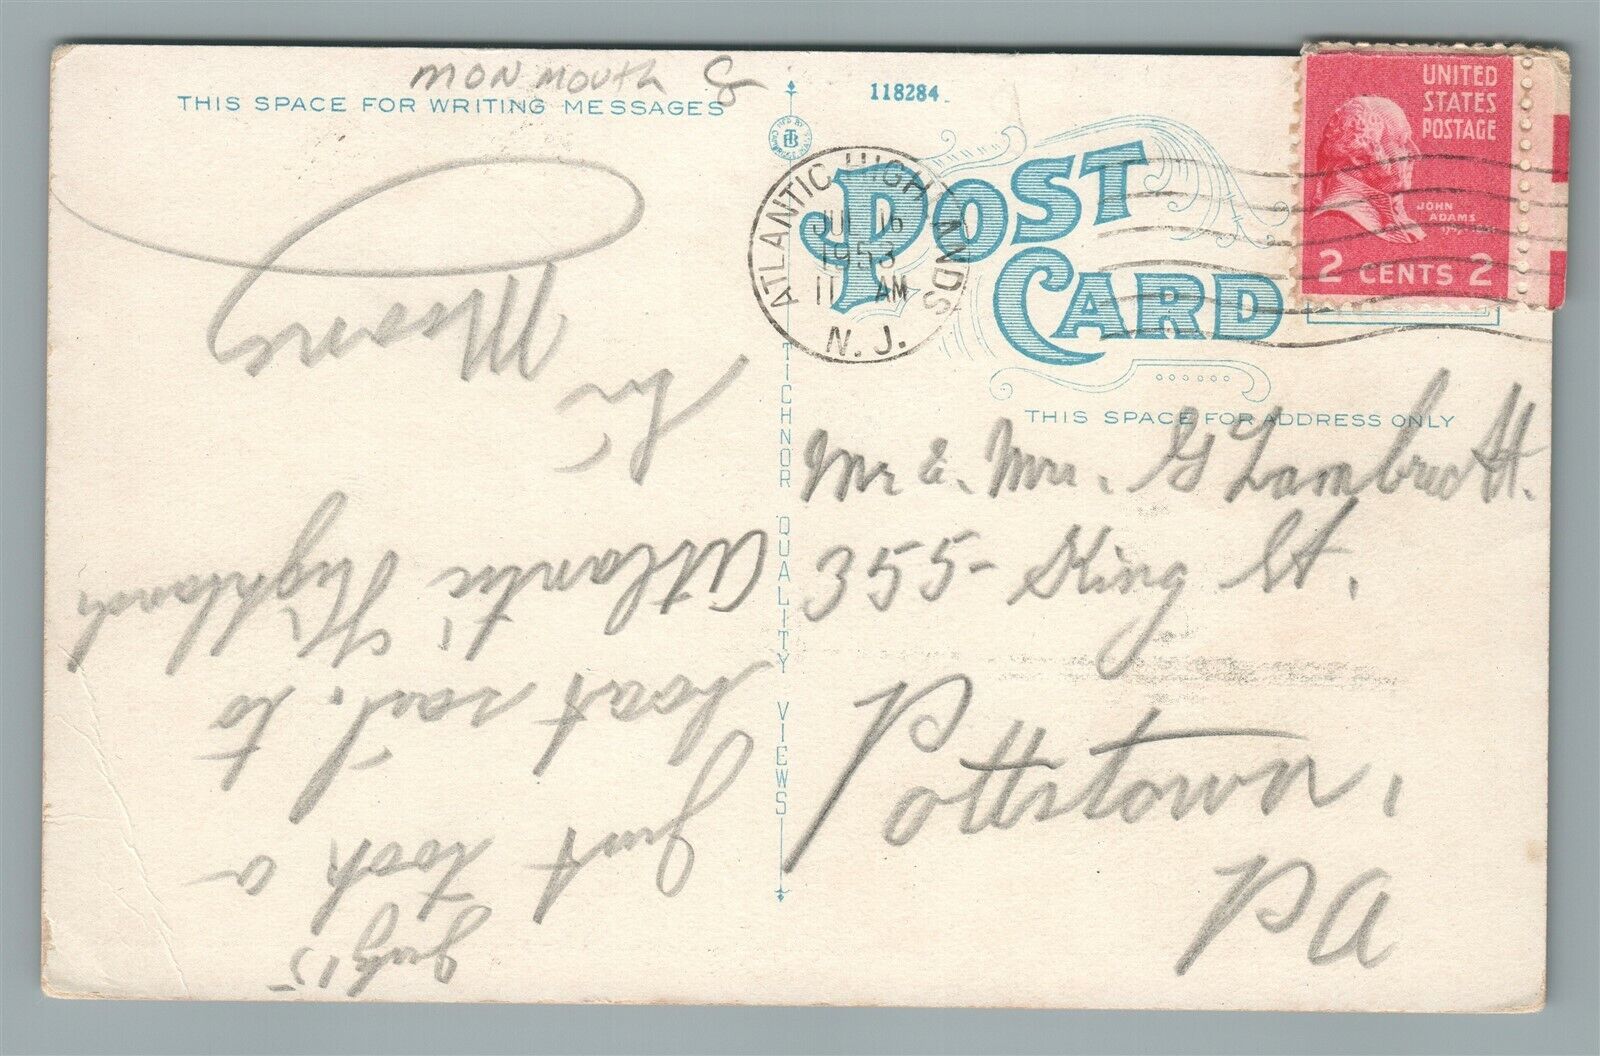 MONMOUTH
THIS SPACE FOR WRITING MESSAGES
118284
UNITED
STATES
POSTAGE
JOHN
ADAMS
2 CENTS 2
ATLANTIC HIGHLANDS
JUL 16
1953
11 AM
N. J.
POST
CARD
THIS SPACE FOR ADDRESS ONLY
TICHNOR QUALITY VIEWS
July 15
Just took a
boat ride to
Atlantic Highlands
Moore
Mr & Mrs. G Lambrecht.
355- King St.
Pottstown,
PA